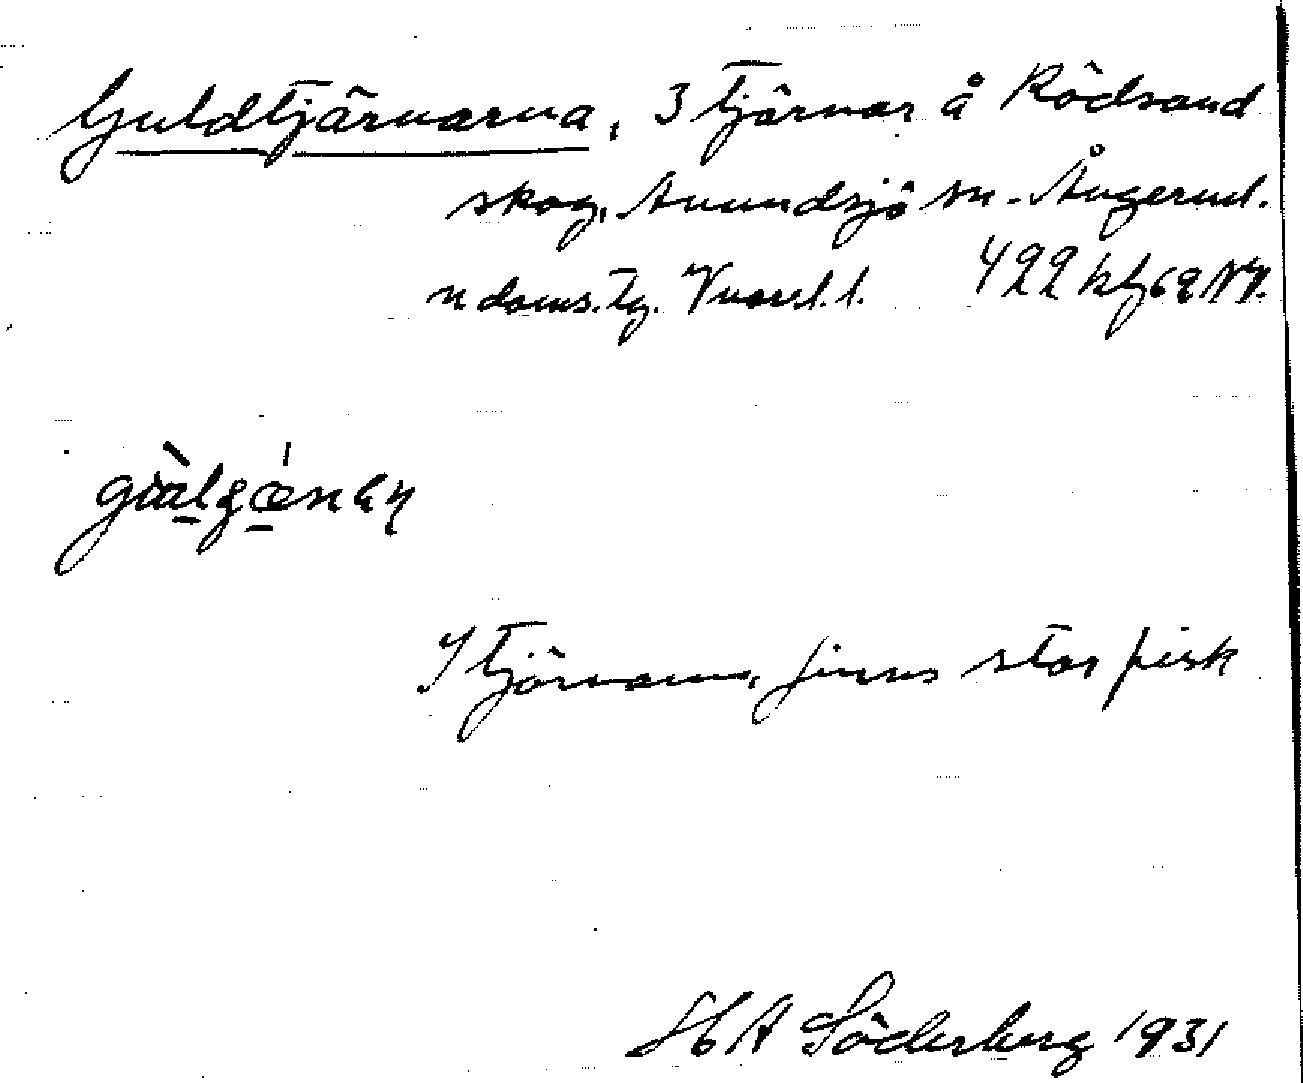 Guldtjärnarna, 3 tjärnar å Rödsand
skog, Anundsjö sn. Ångerml.
n doms. tg. Vnorrl. l. 422 kf 69 NV.
I tjärnarna finns stor fisk
HA Söderberg 1931